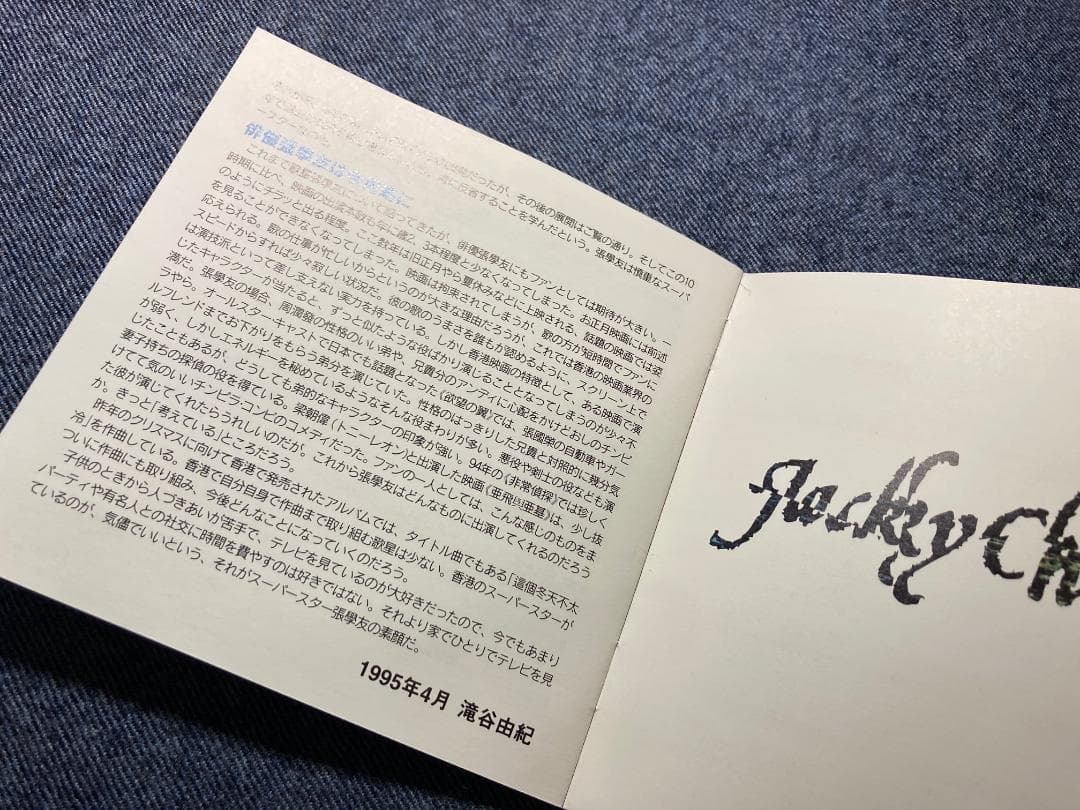 出発だったが、その後の展開はご覧の通り。そしてこの10
常に反省することを学んだという。張學友は慎重なスーパ
俳優張學友は
これまで歌星張學友について語ってきたが、俳優張學友にもファンとしては期待が大きい。一
時期に比べ、映画の出演本数も年に歳2、3本程度と少なくなってしまった。お正月映画には前述
のようにチラッと出る程度。ここ数年は旧正月やら夏休みなどに上映される、話題の映画では姿
を見ることができなくなってしまった。映画は拘束されてしまうが、歌の方が短時間でファンに
応えられる。歌の仕事が忙しいからというのが大きな理由だろうが、これでは香港の映画業界の
スピードからすれば少々寂しい状況だ。彼の歌のうまさを誰もが認めるように、スクリーン上で
は演技派といって差し支えない実力を持っている。しかし香港映画の特徴として、ある映画で演
じたキャラクターが当たると、ずっと似たような役ばかり演じることとなってしまうのが少々不
満だ。張學友の場合、周潤發の性格のいい弟や、兄貴分のアンディに心配をかけどおしのチンピ
ラやら。オールスター・キャストで日本でも話題となった《欲望の翼》では、張國榮の自動車やガー
ルフレンドまでお下がりをもらう弟分を演じていた。性格のはっきりした兄貴と対照的に幾分気
が弱く、しかしエネルギーを秘めているようなそんな役まわりが多い。悪役や剣士の役なども演
じたこともあるが、どうしても弟的なキャラクターの印象が強い。94年の《非常偵探》では珍しく
妻子持ちの探偵の役を得ている。梁朝偉(トニー・レオン)と出演した映画《亜飛與亜基》は、少し抜
けてて気のいいチンピラ・コンビのコメディだった。ファンの一人としては、こんな感じのものをま
た彼が演じてくれたらうれしいのだが。これから張學友はどんなものに出演してくれるのだろう
か。きっと「考えている」ところだろう。
昨年のクリスマスに向けて香港で発売されたアルバムでは、タイトル曲でもある「這個冬天不太
冷」を作曲している。香港で自分自身で作曲まで取り組む歌星は少ない。香港のスーパースターが
ついに作曲にも取り組み、今後どんなことになっていくのだろう。
子供のときから人づきあいが苦手で、テレビを見ているのが大好きだったので、今でもあまり
パーティや有名人との社交に時間を費やすのは好きではない。それより家でひとりでテレビを見
ているのが、気儘でいいという、それがスーパースター張學友の素顔だ。
1995年4月 滝谷由紀
Jacky Ch